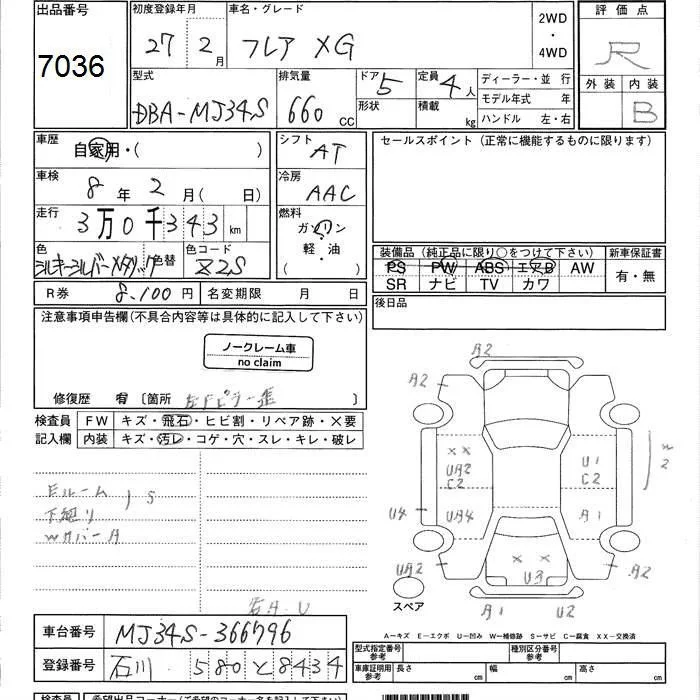 出品番号
7036
初度登録年月
27 2月
車名・グレード
フレア XG
2WD
・
4WD
評価点
R
外装 内装
B
型式
DBA-MJ34S
排気量
660 cc
ドア 5
形状
定員 4人
積載 kg
ディーラー・並行
モデル年式 年
ハンドル 左・右
車歴
自家用・( )
シフト
AT
セールスポイント(正常に機能するものに限ります)
車検
8年 2月( 日)
冷房
AAC
走行
3万0千343km
燃料
ガソリン
軽・油
( )
色
シルキーシルバーメタリック
色替
色コード
Z2S
装備品(純正品に限り○をつけて下さい)
新車保証書
PS PW ABS エアB AW
SR ナビ TV カワ
有・無
R券 8,100円
名変期限 月 日
後日品
注意事項申告欄(不具合内容等は具体的に記入して下さい)
ノークレーム車
no claim
修復歴 有 〔箇所 左Fピラー歪
検査員
記入欄
FW キズ・飛石・ヒビ割・リペア跡・X要
内装 キズ・汚レ・コゲ・穴・スレ・キレ・破レ
Eルーム
下廻り
S
Wカバー A
A2
XX
UA2
C2
U1
C2
W2
U4
UA4
A1
UA2
XX
U3
A2
スペア
A1
U2
A-キズ E-エクボ U-凹み W-補修跡 S-サビ C-腐食 XX-交換済
車台番号
MJ34S-366796
登録番号
石川 580 と 8434
型式指定番号
参考
種別区分番号
参考
車庫証明用
参考
長さ cm
幅 cm
高さ cm
検査員
希望出品コーナー